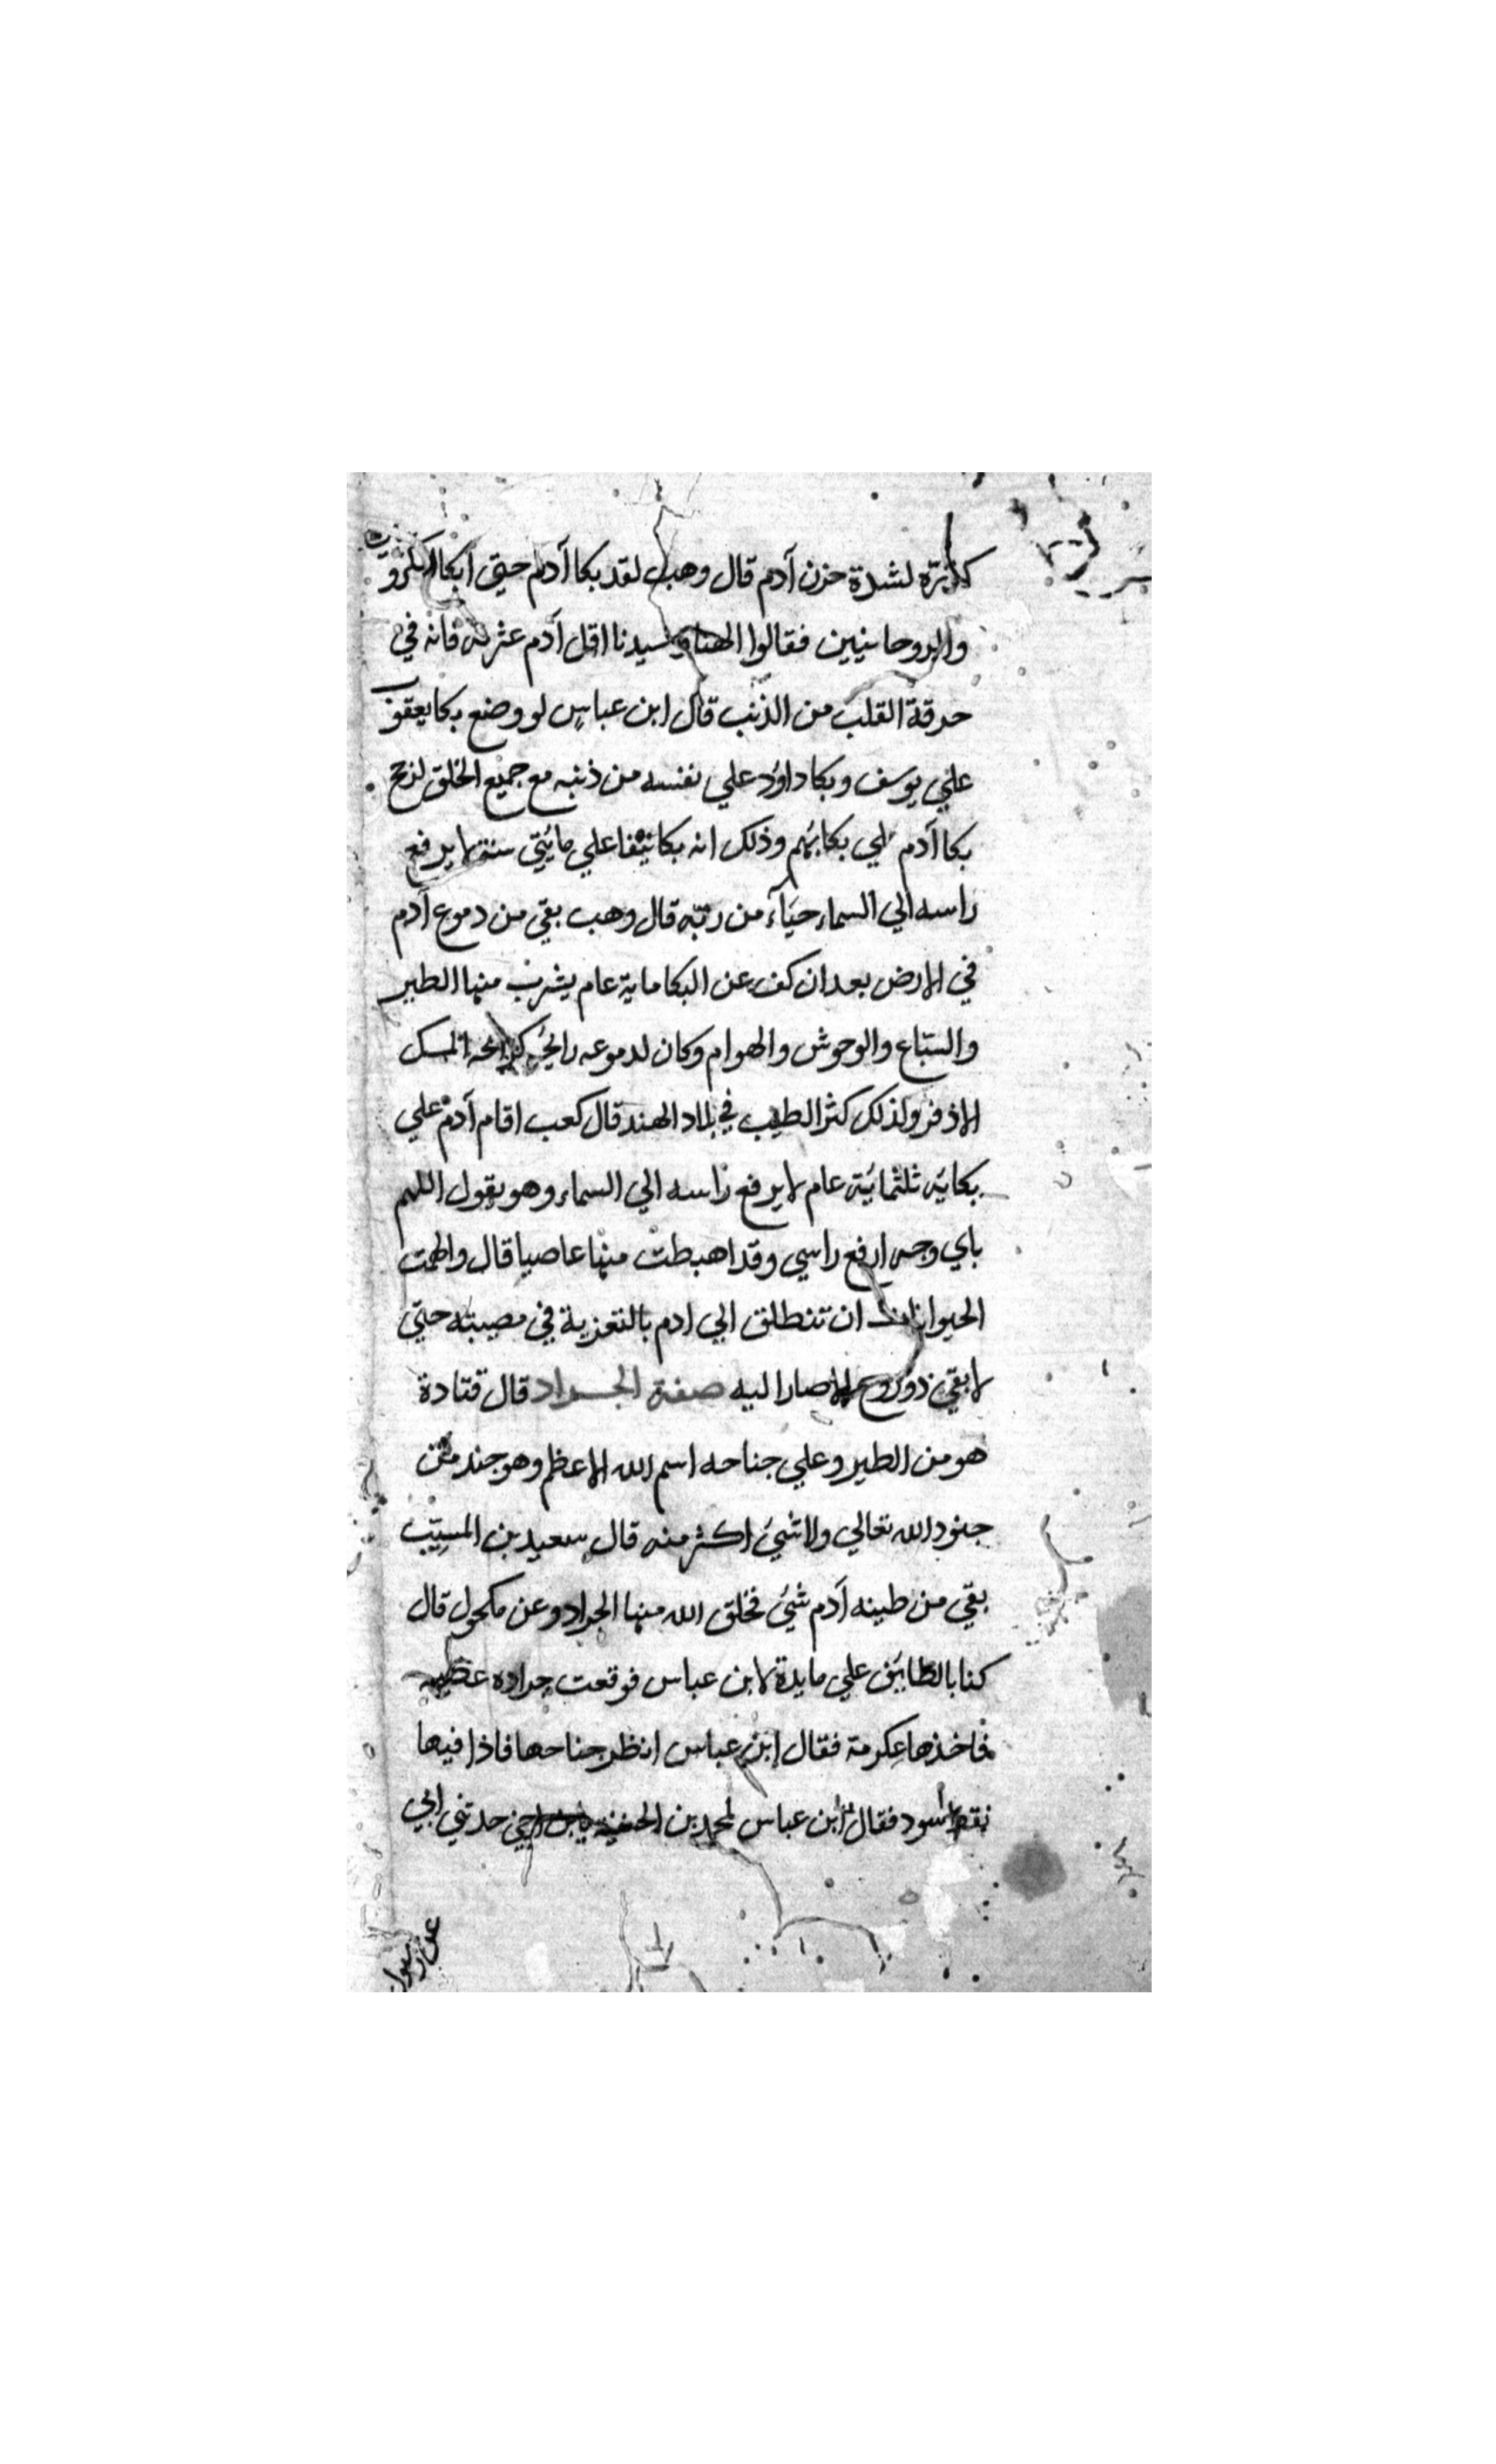 كدرته لشدة حزن آدم قال وهب لقد بكا آدم حتي ابكا الكروبين
والروحانيين فقالوا الهنا وسيدنا اقل آدم عثرته فانه في
حرقة القلب من الذنب قال ابن عباس لو وضع بكا يعقوب
علي يوسف وبكا داود علي نفسه من ذنبه مع جميع الخلق لرجح
بكا آدم علي بكائهم وذلك انه بكا نيفا علي مائتي سنة لا يرفع
راسه الي السماء حياء من ربّه قال وهب بقي من دموع آدم
في الارض بعد ان كف عن البكا ماية عام يشرب منها الطير
والسباع والوحوش والهوام وكان لدموعه رايحة كرايحة المسك
الاذفر ولذلك كثر الطيب في بلاد الهند قال كعب اقام آدم علي
بكائه ثلثمائة عام لا يرفع راسه الي السماء وهو يقول اللهم
باي وجه ارفع راسي وقد اهبطت منها عاصيا قال والهمت
الحيوانات ان تنطلق الي ادم بالتعزية في مصيبته حتي
لا بقي ذو روح الا صار اليه صفة الجراد قال قتادة
هو من الطير وعلي جناحه اسم الله الاعظم وهو جند من
جنود الله تعالي ولا شيئ اكثر منه قال سعيد بن المسيّب
بقي من طينه آدم شيئ فخلق الله منها الجراد وعن مكحول قال
كنا بالطايف علي مايدة لابن عباس فوقعت جراده عظيمه
فاخذها عكرمة فقال ابن عباس انظر جناحها فاذا فيها
نقط اسود فقال ابن عباس لمحمد بن الحنفية يابن اخي حدثني ابي
عن رسول